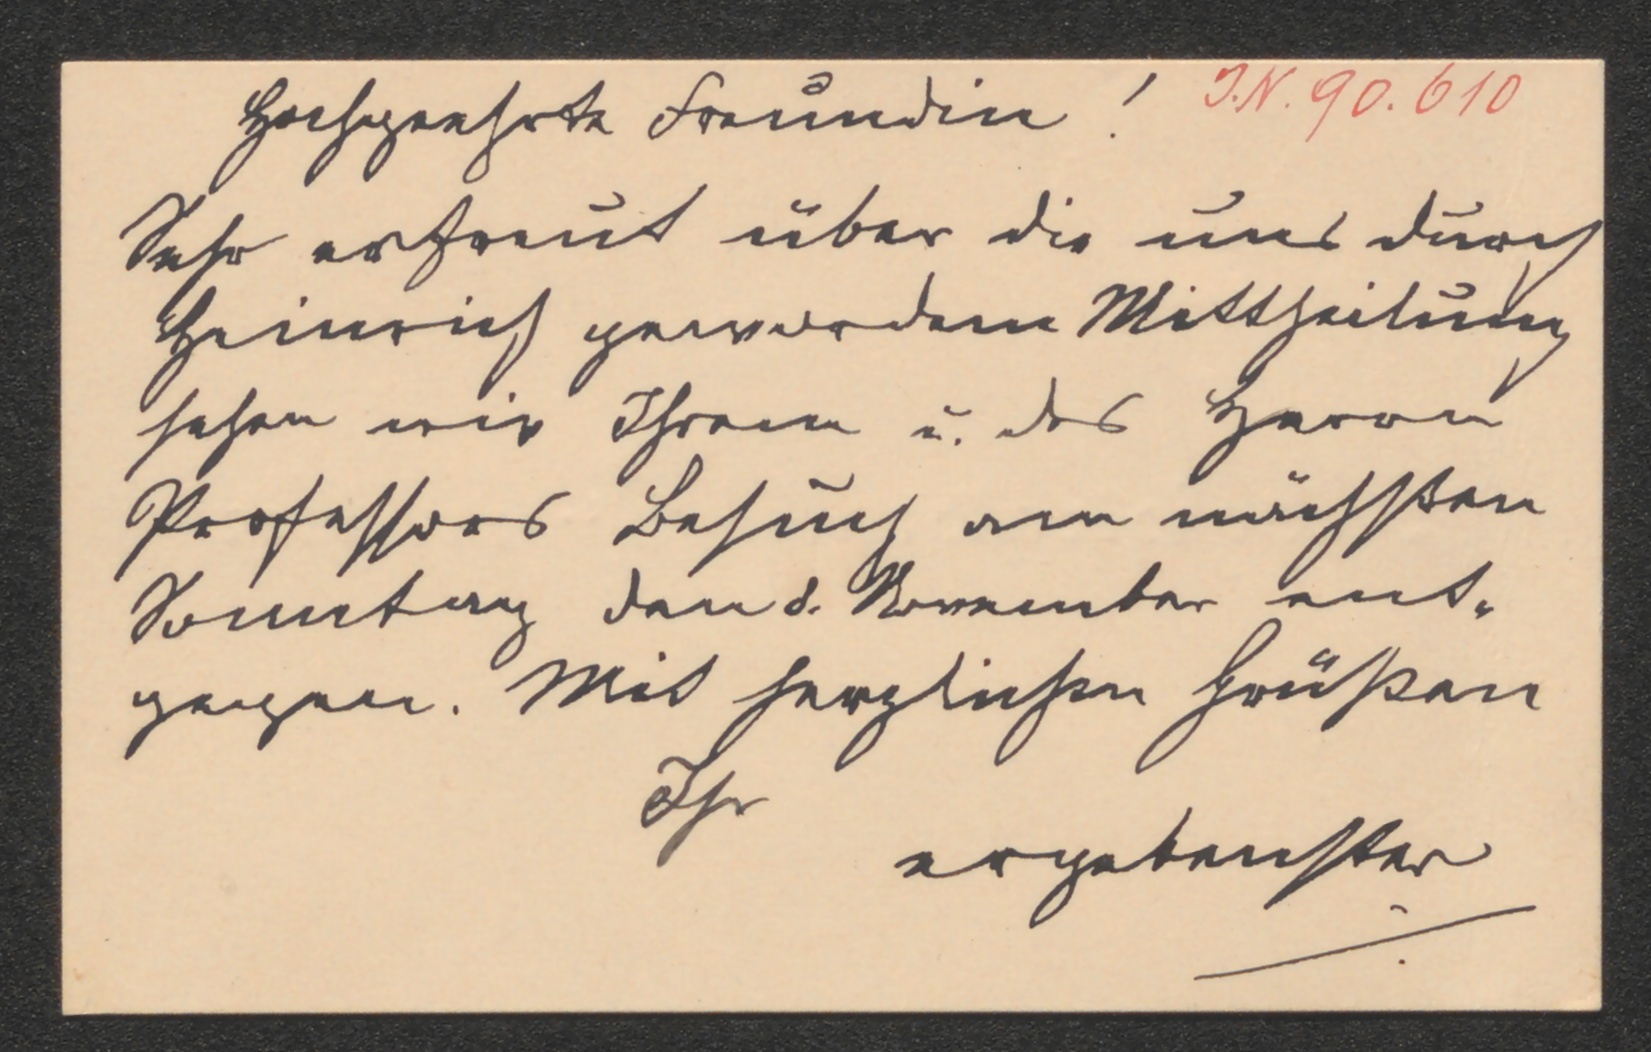 Hochgeehrte Freundin! J.N. 90.610
Sehr erfreut über die uns durch
Heinrich gewordene Mittheilung
sehen wir Ihrem u. des Herrn
Professors Besuch am nächsten
Sonntag den 8. November ent-
gegen. Mit herzlichen Grüßen
Ihr
ergebenster